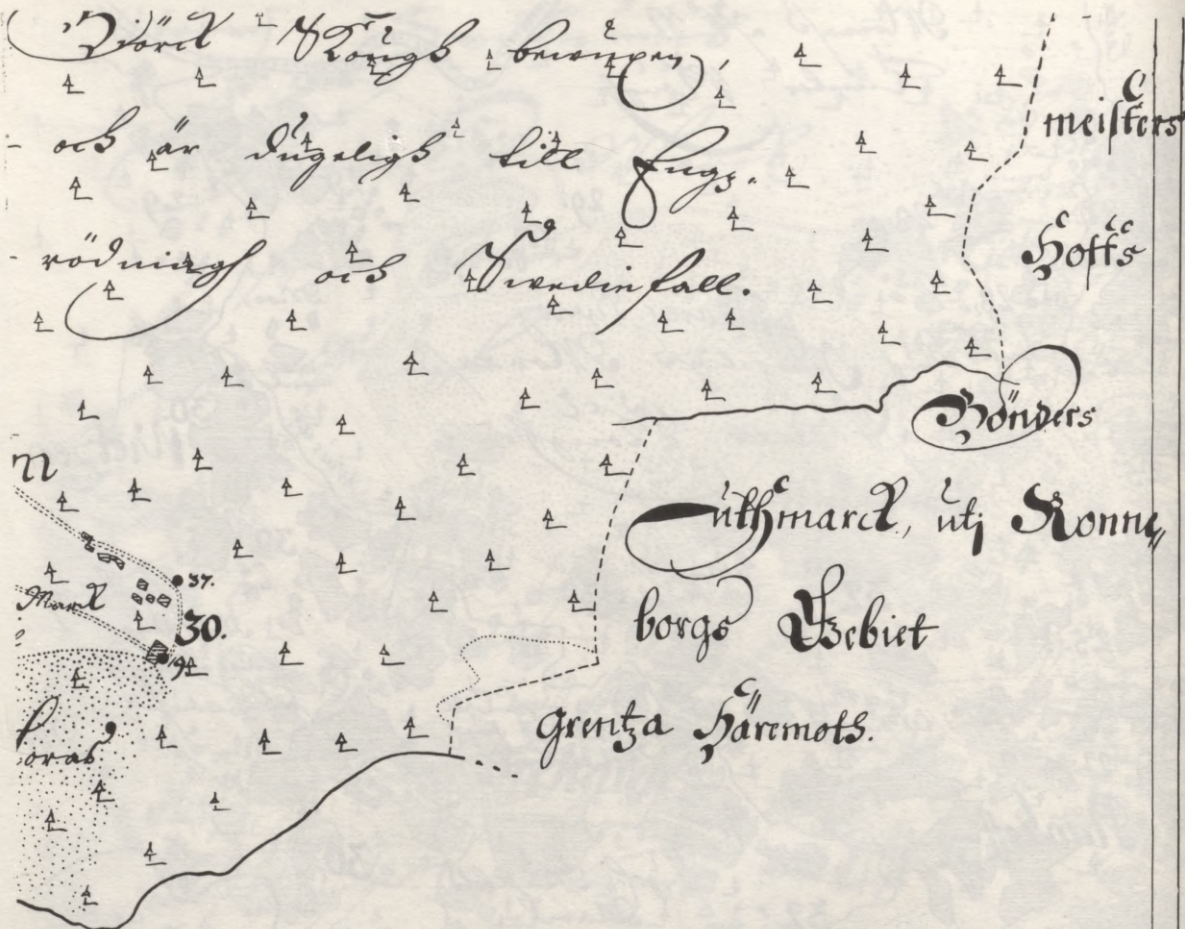 Biörck Skough bewuxen,
och är dugeligh till Engz-
rödningh och Swedie fall.
meisters
Hoffs
Bönders
Uthmarck, utj Ronne„
borgs Gebiet
grentza Häremoth.
n
37.
Marck
30.
19
oras